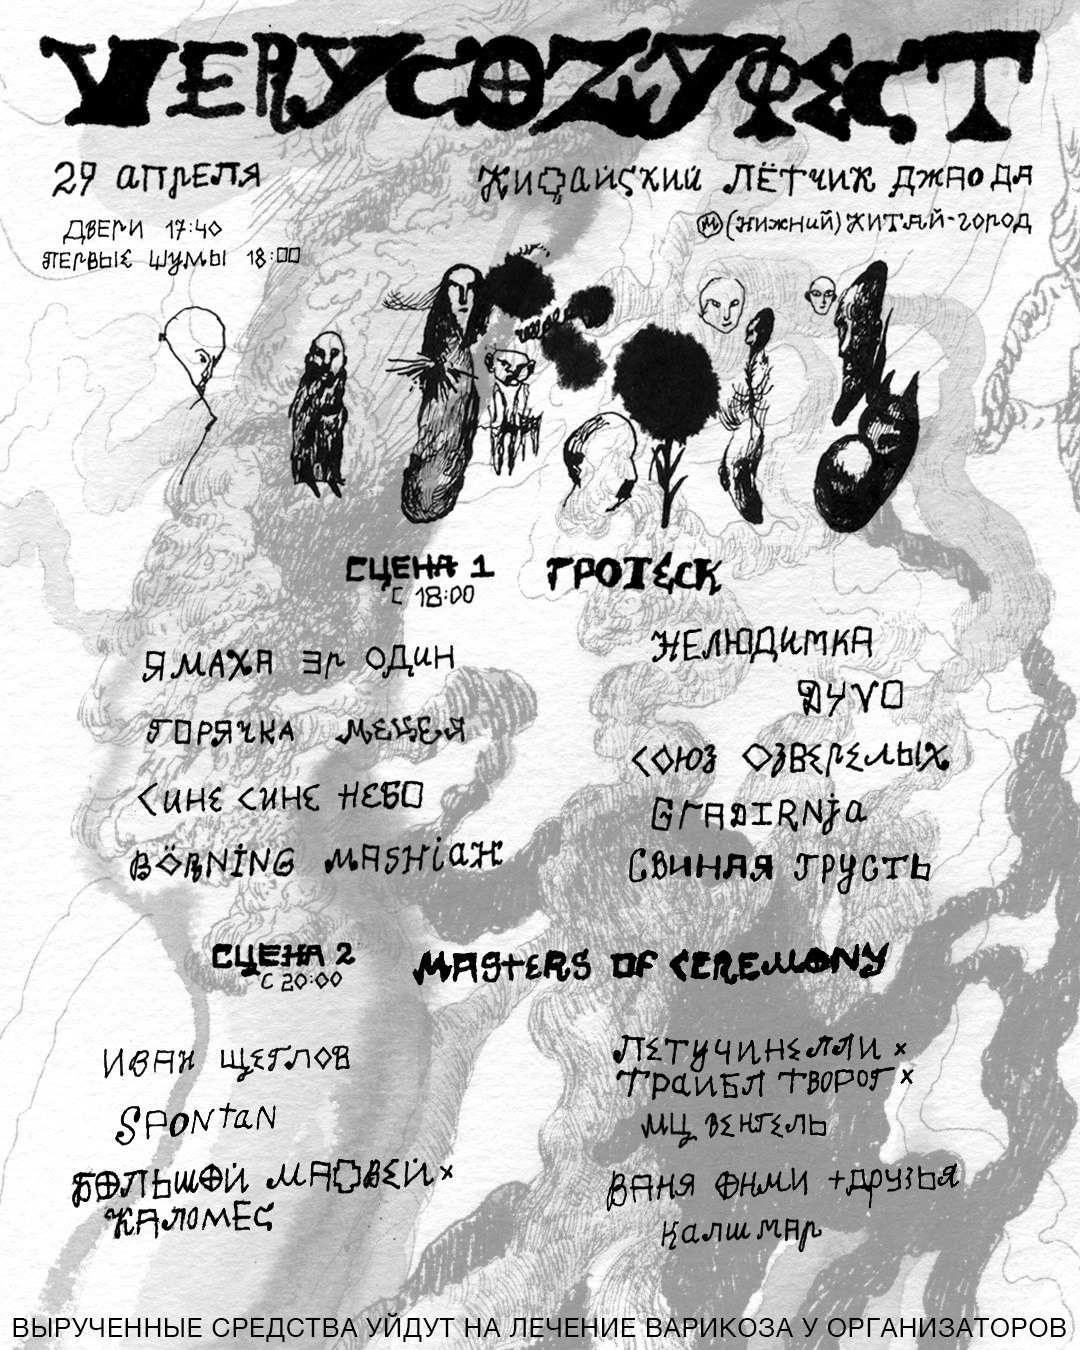 VERYCOZYФЕСТ
29 апреля
Китайский Лётчик Джао Да
Двери 17:40
М (нижний) Китай-город
Первые шумы 18:00
Сцена 1 Гротеск
с 18:00
Ямаха эр один
Нелюдимка
Дуvо
Горячка мецея
Союз озверелых
Сине сине небо
Gradirnja
Börning Mashiah
Свиная грусть
Сцена 2 Masters of Ceremony
с 20:00
Иван Щеглов
Летучинелли х
Трайбл Творог х
Spontan
МЦ Венгель
Большой Матвей х
Каломес
Ваня Онми + друзья
Калшмар
ВЫРУЧЕННЫЕ СРЕДСТВА УЙДУТ НА ЛЕЧЕНИЕ ВАРИКОЗА У ОРГАНИЗАТОРОВ